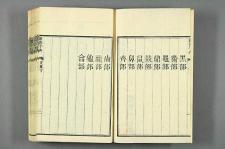 黑部
黹部
黽部
鼎部
鼓部
鼠部
鼻部
齊部
齒部
龍部
龜部
龠部